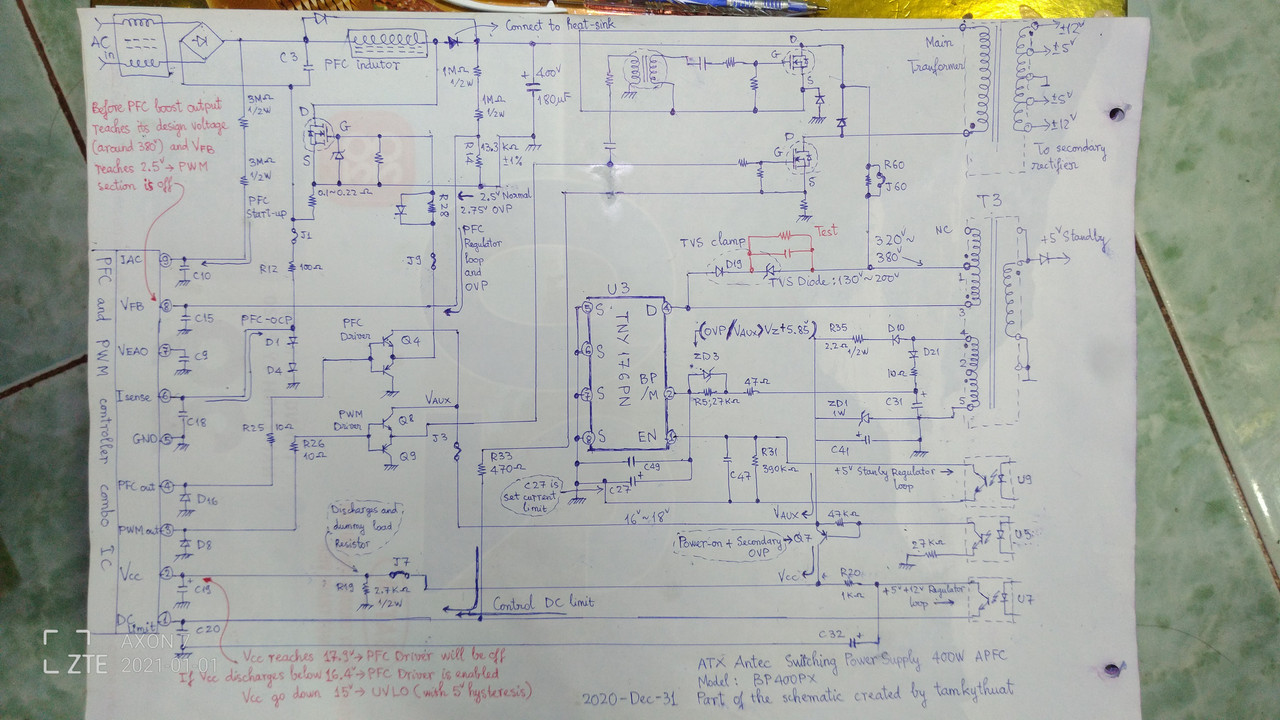 AC
in
C3
PFC indutor
Connect to heat-sink
1MΩ
1/2W
1MΩ
1/2W
+ 400V
180µF
Main
Tranformer
±12V
±5V
±5V
±12V
To secondary
rectifier
Before PFC boost output
reaches its design voltage
(around 380V) and VFB
reaches 2.5V → PWM
section is off
3MΩ
1/2W
3MΩ
1/2W
PFC
Start-up
D
G
S
0.1~0.22Ω
R14
13.3 KΩ
±1%
R28
2.5V Normal
2.75V OVP
PFC
Regulator
loop
and
OVP
J1
R12
100Ω
J9
D
G
S
D
G
S
R60
J60
T3
NC
+5V Standby
320V~
380V
TVS clamp
Test
D19
TVS Diode: 130V~200V
PFC and PWM controller combo IC
IAC
9
C10
VFB
8
C15
PFC-OCP
VEAO
7
C9
D1
D4
Isense
6
C18
GND
5
R25
10Ω
R26
10Ω
PFC out
4
D16
PWM out
3
D8
VCC
2
C19
DC
limit
1
C20
PFC
Driver
Q4
PWM
Driver
Q8
Q9
VAUX
J3
R33
470Ω
U3
TNY176PN
S
S
S
S
D
4
BP
/M
2
EN
1
(OVP/VAUX) VZ+5.85V
ZD3
R5; 27KΩ
47Ω
R35
2.2Ω 1/2W
D10
D21
10Ω
C31
ZD1
1W
C41
1
3
4
2
5
C49
C27
C47
R31
390KΩ
C27 is
set current
limit
+5V Stanby Regulator
loop
U9
16V~18V
VAUX
47KΩ
Power-on + Secondary
OVP
Q7
27KΩ
U5
VCC
R20
1KΩ
+5V+12V Regulator
loop
U7
C32
Discharges and
dummy load
Resistor
R19
2.7KΩ
1/2W
J7
Control DC limit
VCC reaches 17.9V → PFC Driver will be off
If VCC discharges below 16.4V → PFC Driver is enabled
VCC go down 15V → UVLO (with 5V hysteresis)
ATX Antec Switching Power Supply 400W APFC
Model: BP400PX
2020-Dec-31 Part of the schematic created by tamkythuat
AXON 7
ZTE 2021-01-01